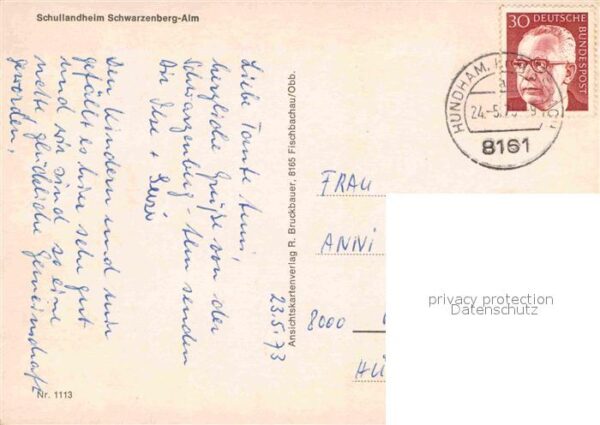 Schullandheim Schwarzenberg-Alm
Liebe Tante Anni,
herzliche Grüße von der
Schwarzenberg-Alm senden
Dir Ilse +
Den Kindern und mir
gefällt es hier sehr gut
und wir sind so eine
nette glückliche Gemeinschaft
geworden.
Nr. 1113
Ansichtskartenverlag R. Bruckbauer, 8165 Fischbachau/Obb.
23.5.73
30 DEUTSCHE
BUNDESPOST
HUNDHAM,
a
24.-5.73
8161
FRAU
ANNI
8000
privacy protection
Datenschutz